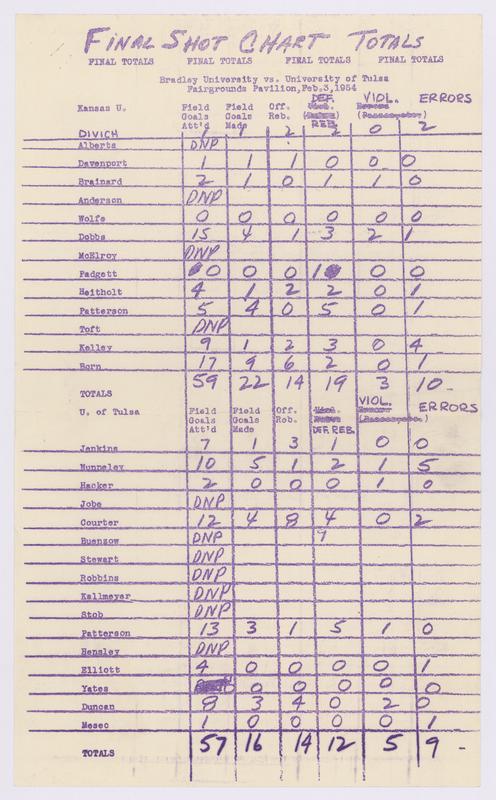 FINAL SHOT CHART TOTALS
FINAL TOTALS FINAL TOTALS FINAL TOTALS FINAL TOTALS
Bradley University vs. University of Tulsa
Fairgrounds Pavilion, Feb. 3, 1954
DEF. VIOL. ERRORS
Kansas U. Field Field Off.
Goals Goals Reb.
Att'd Made REB.
DIVICH 1 1 2 2 0 2
Alberts DNP
Davenport 1 1 1 0 0 0
Brainard 2 1 0 1 1 0
Anderson DNP
Wolfe 0 0 0 0 0 0
Dobbs 15 4 1 3 2 1
McElroy DNP
Padgett 0 0 0 1 0 0
Heitholt 4 1 2 2 0 1
Patterson 5 4 0 5 0 1
Toft DNP
Kelley 9 1 2 3 0 4
Born 17 9 6 2 0 1
59 22 14 19 3 10
TOTALS VIOL. ERRORS
U. of Tulsa Field Field Off.
Goals Goals Reb.
Att'd Made DEF. REB.
Jenkins 7 1 3 1 0 0
Nunneley 10 5 1 2 1 5
Hacker 2 0 0 0 1 0
Jobe DNP
Courter 12 4 8 4 0 2
Buenzow DNP
Stewart DNP
Robbins DNP
Kallmeyer DNP
Stob DNP
Patterson 13 3 1 5 1 0
Hensley DNP
Elliott 4 0 0 0 0 1
Yates 0 0 0 0 0
Duncan 8 3 4 0 2 0
Mesec 1 0 0 0 0 1
TOTALS 57 16 14 12 5 9 -